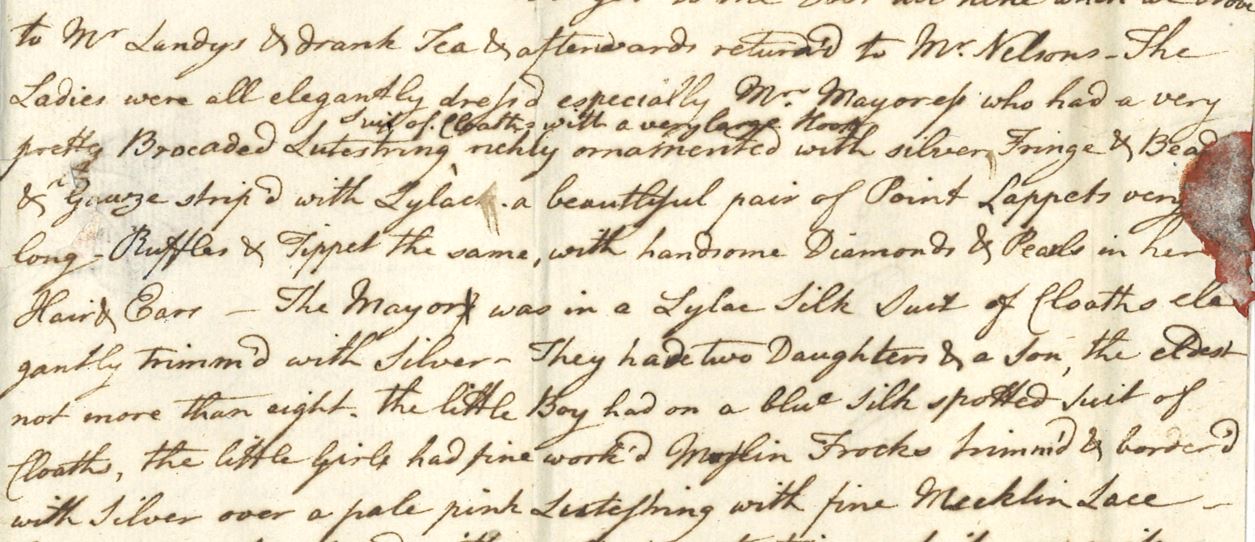 to Mr Lundys & drank Tea & afterwards return'd to Mr. Nelsons - The
Ladies were all elegantly dress'd especially Mrs Mayoress who had a very
Suit of Cloaths with a very large Hoop
pretty Brocaded Lutestring richly ornamented with silver Fringe & Bead
& Gauze strip'd with Lylack - a beautiful pair of Point Lappets very
long - Ruffles & Tippet the same, with handsome Diamonds & Pearls in her
Hair & Ears - The Mayor was in a Lylac Silk Suit of Cloaths ele
gantly trimm'd with Silver - They had two Daughters & a Son, the eldest
not more than eight. the little Boy had on a blue Silk spotted Suit of
Cloaths, the little Girls had fine work'd Muslin Frocks trimm'd & border'd
with Silver over a pale pink Lutestring with fine Mecklin Lace -